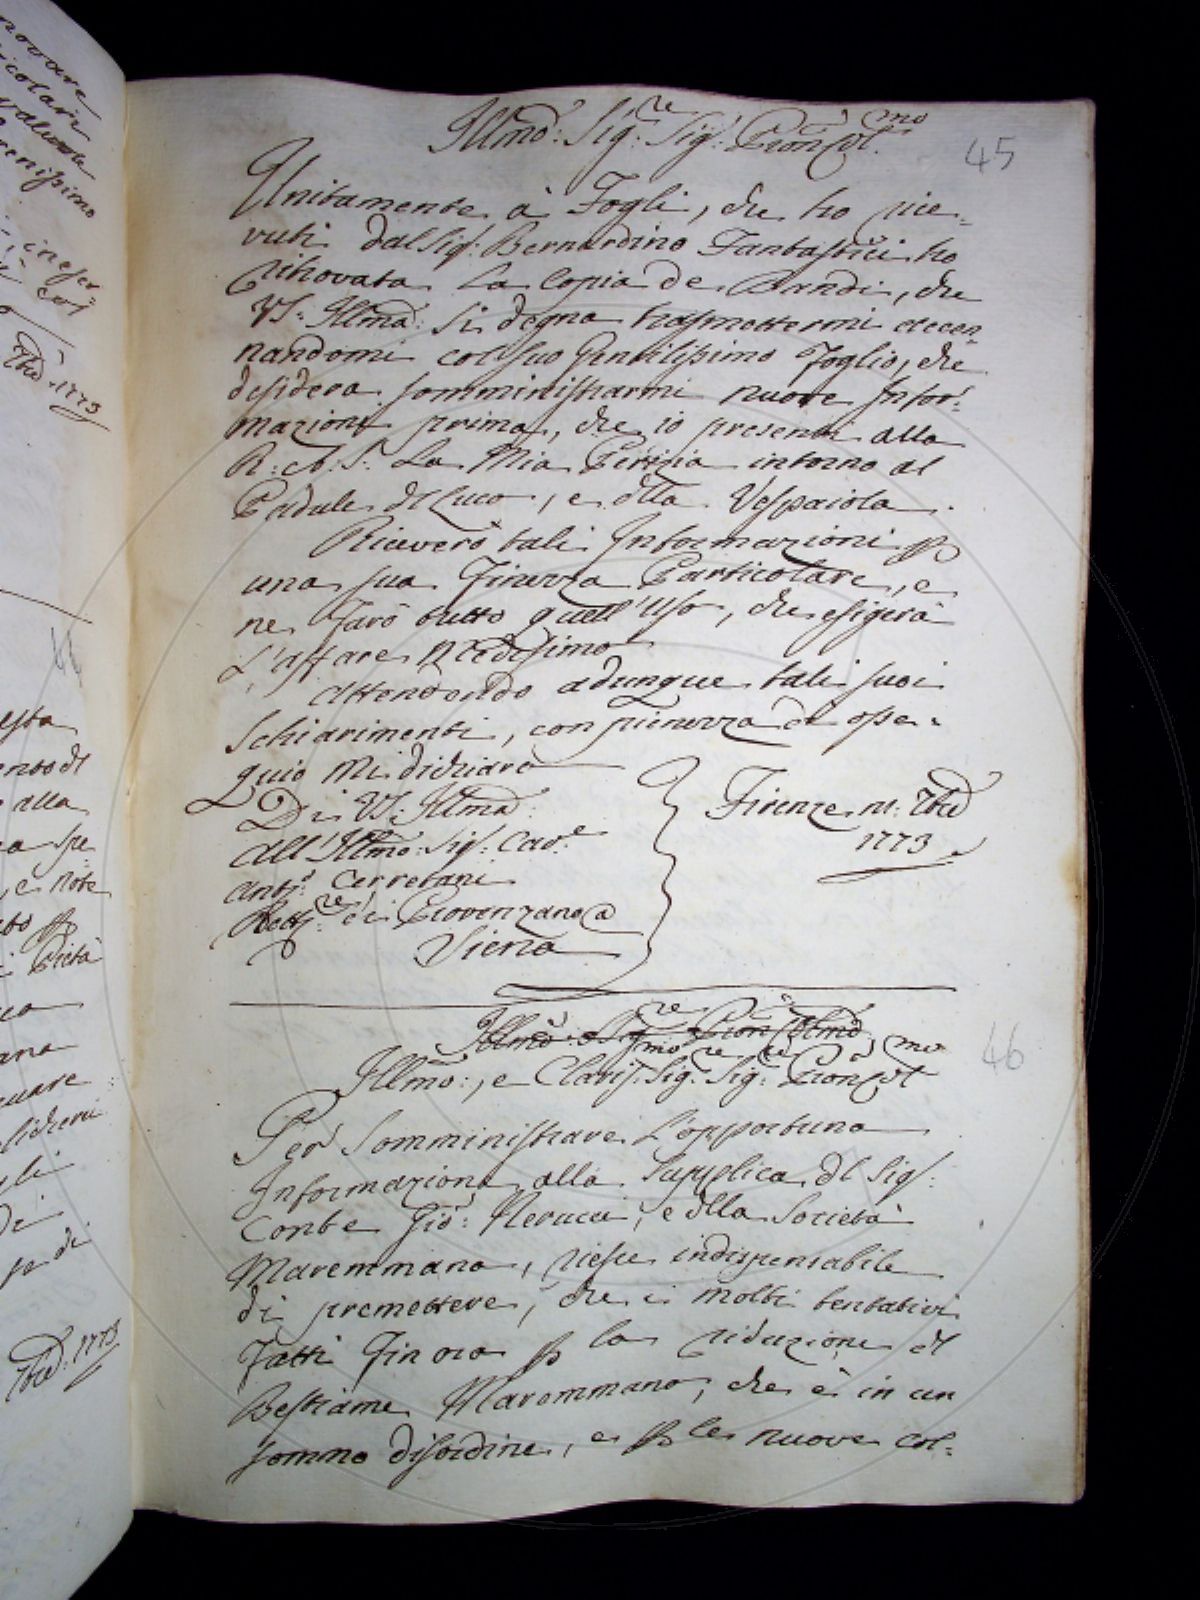 novare
icolari
valuta
renissimo
7bre 1773
Illmo: Sig:re Sig: Pron Col.mo
45
Unitamente à Fogli, che ho rice-
vuti dal Sig: Bernardino Fantastici ho
ritrovata la Copia de Bandi, che
VS. Illma: si degna trasmettermi accen-
nandomi col suo Gentilissimo foglio, che
desidera somministrarmi nuove Infor-
mazioni prima, che io presenti alla
R: A: S: La Mia Perizia intorno al
Padule di Luco, e della Vespaiola.
Riceverò tali Informazioni p
una sua Finezza Particolare, e
ne farò tutto quell'Uso, che esigerà
L'affare Medesimo
Attendendo adunque tali suoi
Schiarimenti, con pienezza di osse-
quio Mi dichiaro
Di VS. Illma:
All'Illmo: Sig: Cav:e
Ant:o Cerretani
Rett:re di Provenzano a
Siena
Firenze 11: 7bre
1773
46
Illmo:, e Claris:mo Sig:re Sig:re Pron Col:mo
Per Somministrare L'opportuna
Informazione alla Supplica dl Sig:
Conte Gio: Nerucci, e dlla Società
Maremmana, riesce indispensabile
di premettere, che i molti tentativi
fatti fin ora p la riduzione dl
Bestiame Maremmano, che è in un
sommo disordine, e p le nuove Col-
esta
alla
e note
Pietà
di
7bre: 1773